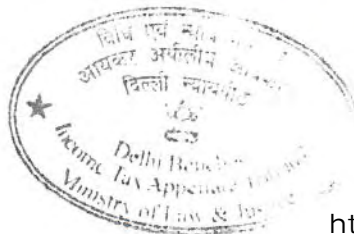 विधि एवं न्याय
आयकर अपीलीय
दिल्ली न्यायपीठ
Delhi Benches
Income Tax Appellate
Ministry of Law &
ht